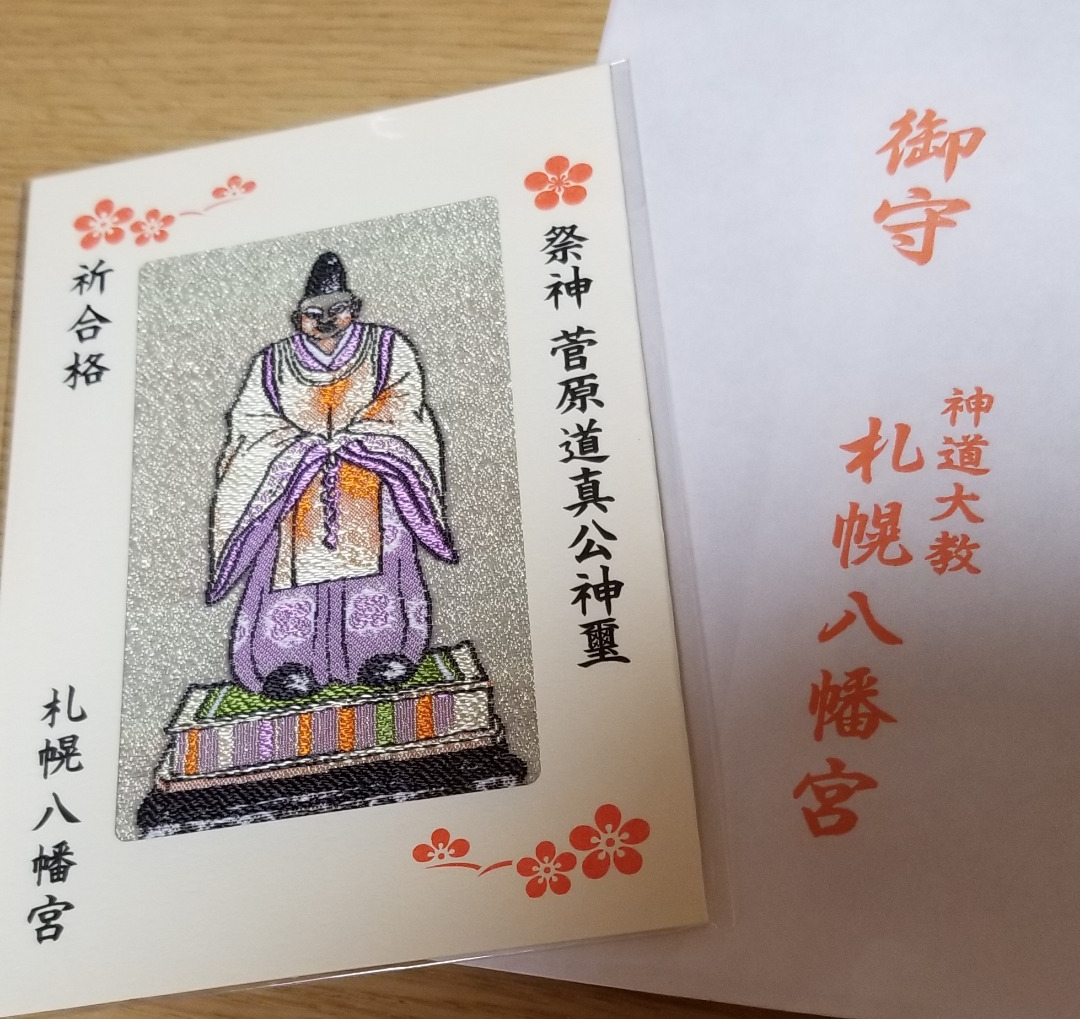 祭神 菅原道真公神璽
祈合格
札幌八幡宮
御守
神道大教
札幌八幡宮